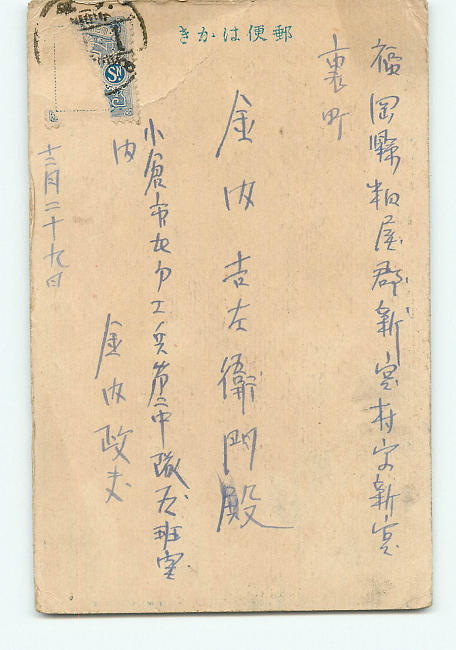 きかは便郵
福岡縣粕屋郡新宮村字新宮
裏町
金内吉左衛門殿
小倉市北方工兵第二中隊五班室
内
金内政夫
十二月二十九日